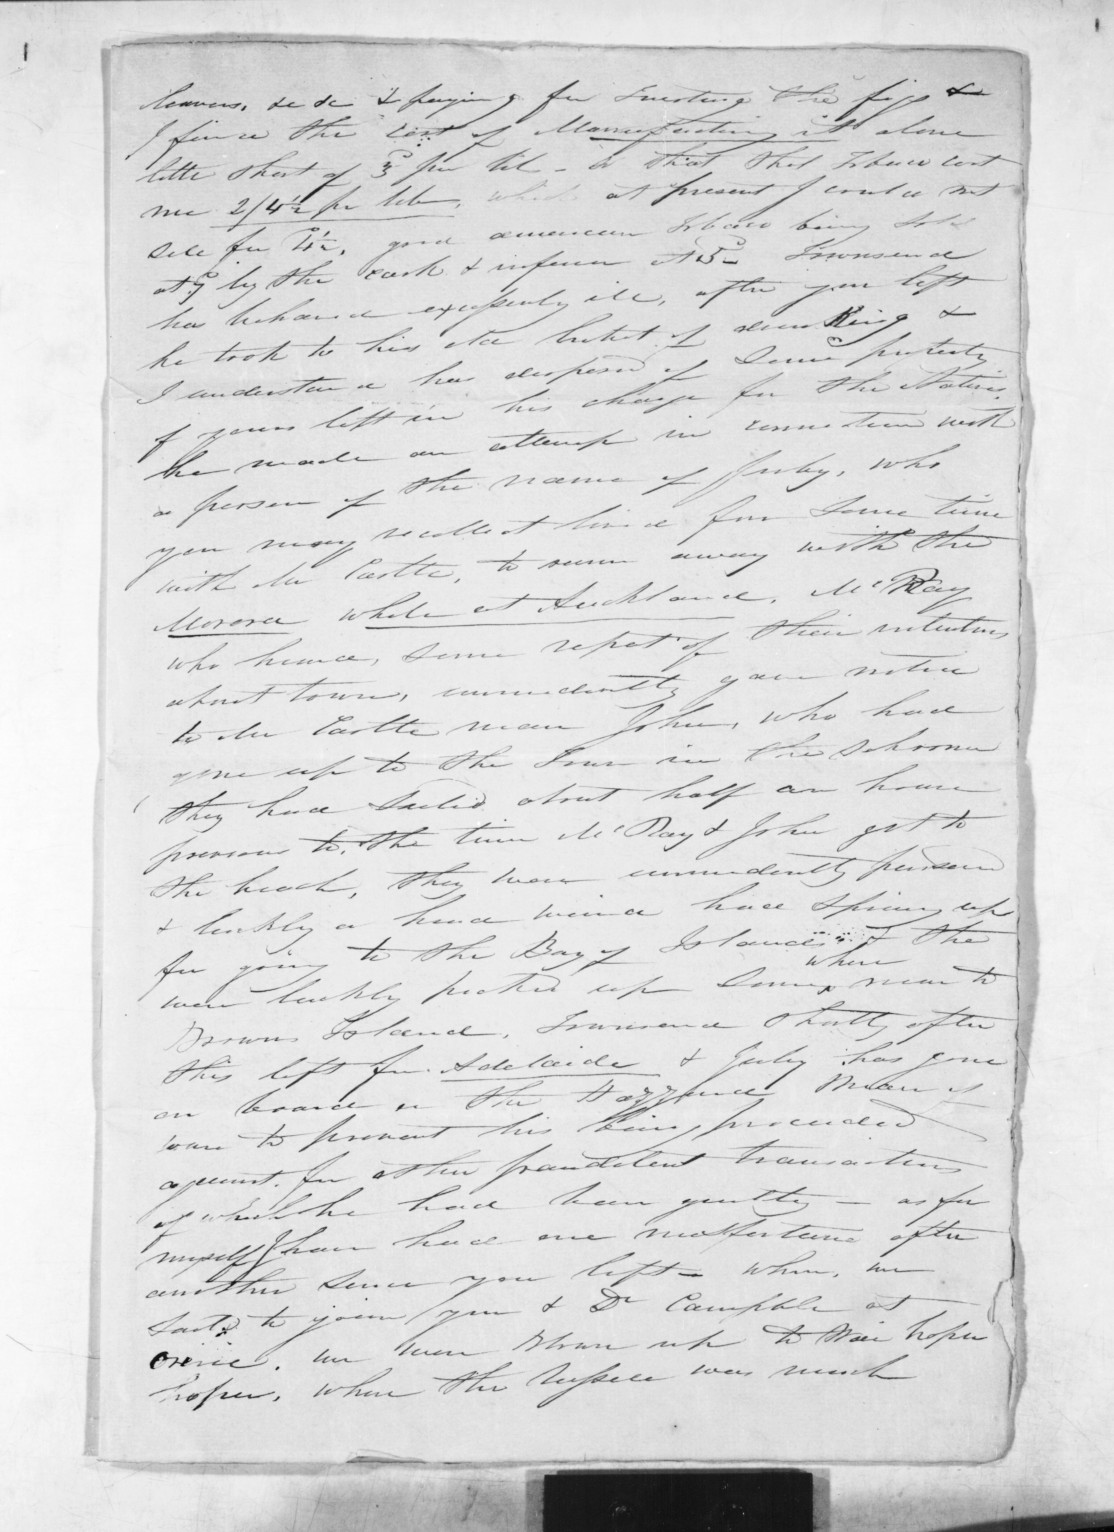 leaves, &c &c & paying for twisting the figs &
I find the cost of Manufacturing it alone
little short of 3d per lb - so that that Tobacco cost
me 2/4½ pr lb, which at present I could not
sell for 4½, good american Tobacco being sold
at 9d by the cask & inferior at 5d - Townsend
has behaved excessively ill, after you left
he took to his old habit of drinking &
I understand has disposed of some property
of yours left in his charge for the Natives
he made an attempt in connection with
a person of the name of Juby, who
you may recollect lived for some time
with Mr Castle, to run away with the
while at Auckland, McRay
who heard, some repot of their intentions
about town, immediatly gave notice
to Mr Castle man John, who had
gone up to the Town in the schooner
they had Sailed about half an hour
previous to, the time McRay & John got to
the beach, they were immediatly pursued
& luckly a head wind had sprung up
for going to the Bay of Islands & the
were luckly picked up some where near to
Browns Island, Townsend shortly after
this left for Adelaide & Juby has gone
on board of the Hazzard Man of
war to prevent his being proceeded
against for other fraudelent transactions
of which he had been guilty - as for
myself I have had one misfortune after
another since you left - when, we
Saild to join you & Dr Campble at
we were blown up to Wai hopu
hopu, where the Vessell was much